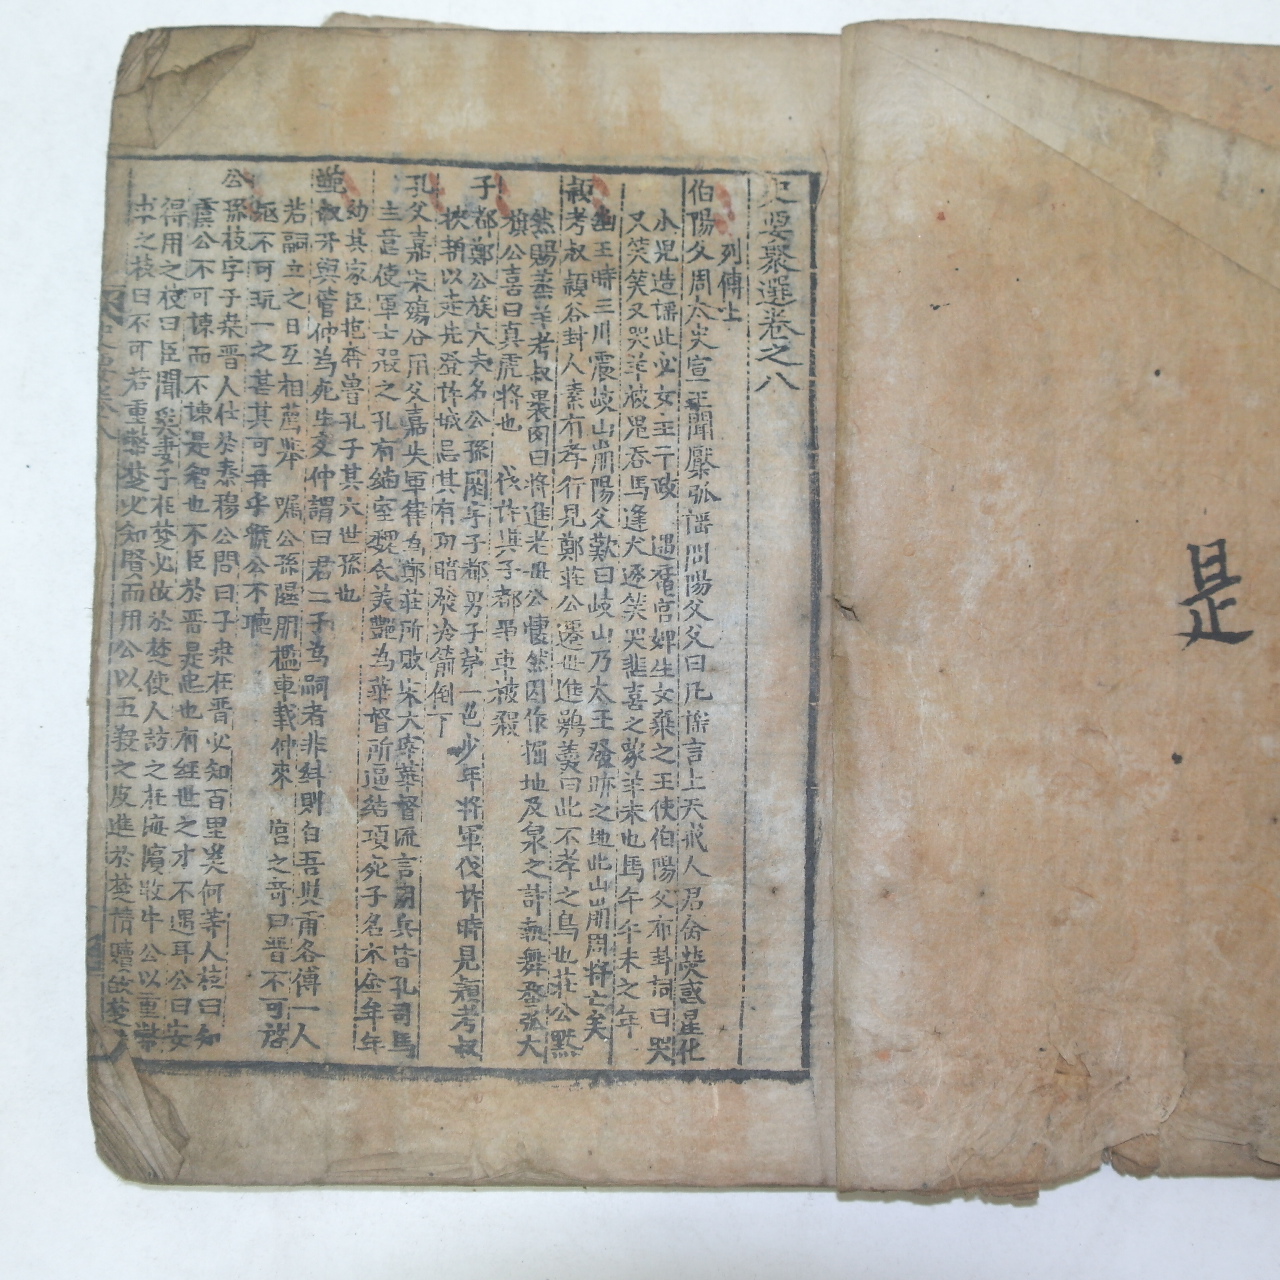 是
史要聚選卷之八
列傳上
伯陽父周太史宣王聞檿弧謠問陽父父曰凡謠言上天戒人君命熒惑星化
小兒造謠此必女主干政 遇舊宮婢生女棄之王使伯陽父布卦詞曰哭
又笑笑又哭羊被鬼吞馬逢犬逐笑哭悲喜之象羊未也馬午午未之年
幽王時三川震岐山崩陽父歎曰岐山乃太王發跡之地此山崩周將亡矣
穎考叔穎谷封人素有孝行見鄭莊公遷母進鶚羹曰此不孝之鳥也莊公黙
然賜蒸羊考叔裹肉曰將進老母公悽然因作掘地及泉之計執舞蝥弧大
旗公喜曰真虎將也 伐許與子都爭車被殺
子都鄭公族大夫名公孫閼字子都男子第一色少年將軍伐許時見穎考叔
挾輈以走先登許城忌其有功暗發冷箭倒下
孔父嘉宋殤公用父嘉失軍律為鄭莊所敗宋太宰華督流言用兵皆孔司馬
主意使軍士殺之孔有繼室魏氏美艶為華督所逼結項死子名木金年
幼其家臣抱奔魯孔子其六世孫也
鮑叔牙與管仲為死生交仲謂曰君二子為嗣者非糾則白吾與甫各傅一人
若嗣立之日互相薦擧 囑公孫隰朋檻車載仲來 宮之奇曰晋不可啓
寇不可玩一之甚其可再乎虢公不聽
公孫枝字子桒晋人仕於秦穆公問曰子桒在晋必知百里奚何等人枝曰知
虞公不可諫而不諫是智也不臣於晋是忠也有經世之才不遇耳公曰安
得用之枝曰臣聞奚妻子在楚必故於楚使人訪之在海濱牧牛公以重幣
求之枝曰不可若重幣楚必知賢而用公以五羖之皮進於楚情贖故楚人